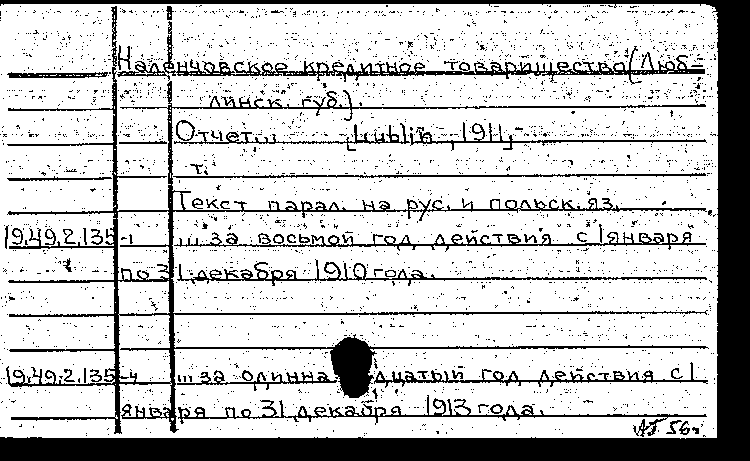 Наленчовское кредитное товарищество (Люб-
линск. губ.).
Отчет... [Lublin, 1911,-
т.
Текст парал. на рус. и польск. яз.
19.49.2.135-1 ... за восьмой год действия с 1 января
по 31 декабря 1910 года.
19.49.2.135-4 ... за одиннадцатый год действия с 1
января по 31 декабря 1913 года.